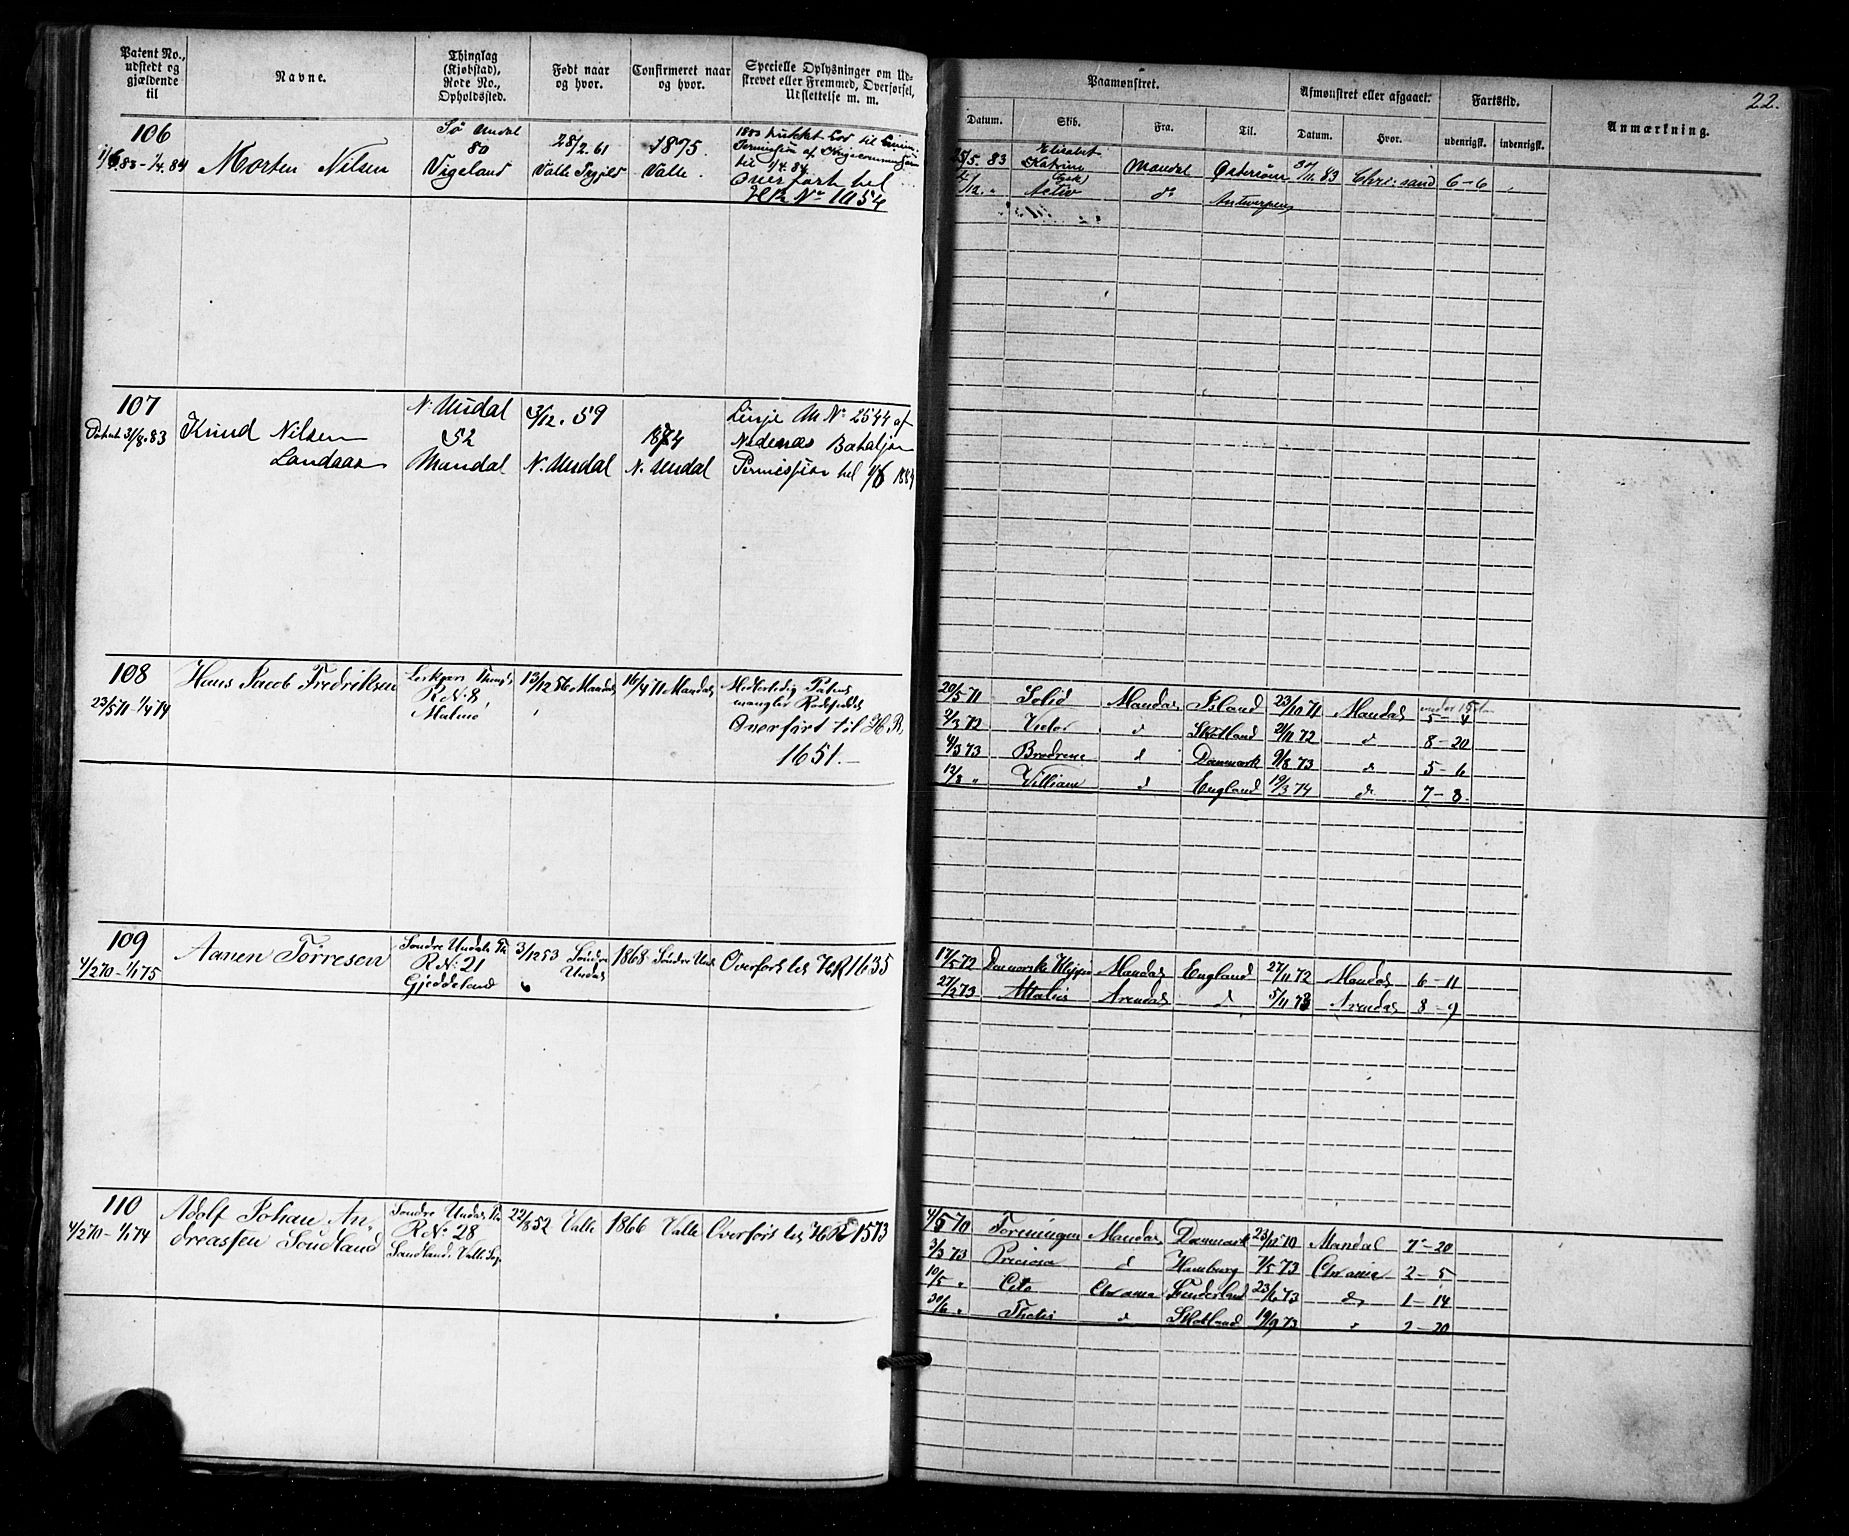 Patent No., udstedt og gjældende til
Navne.
Thinglag (Kjøbstad), Rode No., Opholdssted.
Født naar og hvor.
Confirmeret naar og hvor.
Specielle Oplysninger om Udskrevet eller Fremmed, Overførsel, Udslettelse m. m.
Paamønstret.
Afmønstret eller afgaaet.
Fartstid.
Anmærkning.
22.
Datum.
Skib.
Fra.
Til.
Datum.
Hvor.
udenrigsk.
indenrigsk.
106
1/6 83 - 1/4 84
Morten Nilsen
Sø Undal
80
Vigeland
28/2. 61
Valle
1875.
Valle.
til 1/4 84
Overført til
HR No 1054
25/5. 83
Elisabet Katrine
Mandal
Østersøen
83
Chr:sand
6 - 6
/12. "
Activ
do
Antwerpen
107
Patent 31/8. 83
Knud Nilsen
Landaas
N. Undal
52
Mandal
3/12. 59
N. Undal
1874
N. Undal
Linje M No 2544 af
Nedenæs Bataljon
Permission til 1/6 1884
108
23/5 71 - 1/4 74
Hans Jacob Fredriksen
R No 8
Malmø
13/12 56 Mandal
16/4 71 Mandal
mangler Rodeseddel
Overført til H.R.
1651.-
20/5 71
Solid
Mandal
Island
23/10 71
Mandal
under 15 t
5 - 4
2/3 72
Victor
d
Skotland
21/11 72
d
8 - 20
4/3 73
Brødrene
d
Danmark
9/8 73
d
5 - 6
12/8 "
William
d
England
19/3 74
d
7 - 8
109
4/2 70 - 1/1 75
Aanen Tørresen
Søndre Undals Th
R No 21
Gjeddeland
3/12 53
Søndre Undal
1868 Søndre Und
Overført til HR 1635
17/5 72
Mandal
England
27/11 72
Mandal
6 - 11
27/2 73
Attalus
Arendal
d
5/11 73
Arendal
8 - 9
110
4/2 70 - 1/1 74
Adolf Johan An-
dreassen Sŏndland
Søndre Undals Th
R No 28
22/8 52 Valle
1866 Valle
Overført til HR 1573
4/5 70
Foreningen
Mandal
Danmark
23/11 70
Mandal
7 - 20
3/3 73
Preciosa
d
Hamburg
7/5 73
Chr ania
2 - 5
10/5 "
Cito
Chr ania
Sunderland
23/6 73
do
1 - 14
30/6 "
Thetis
d
Skotland
19/9 73
"
2 - 20